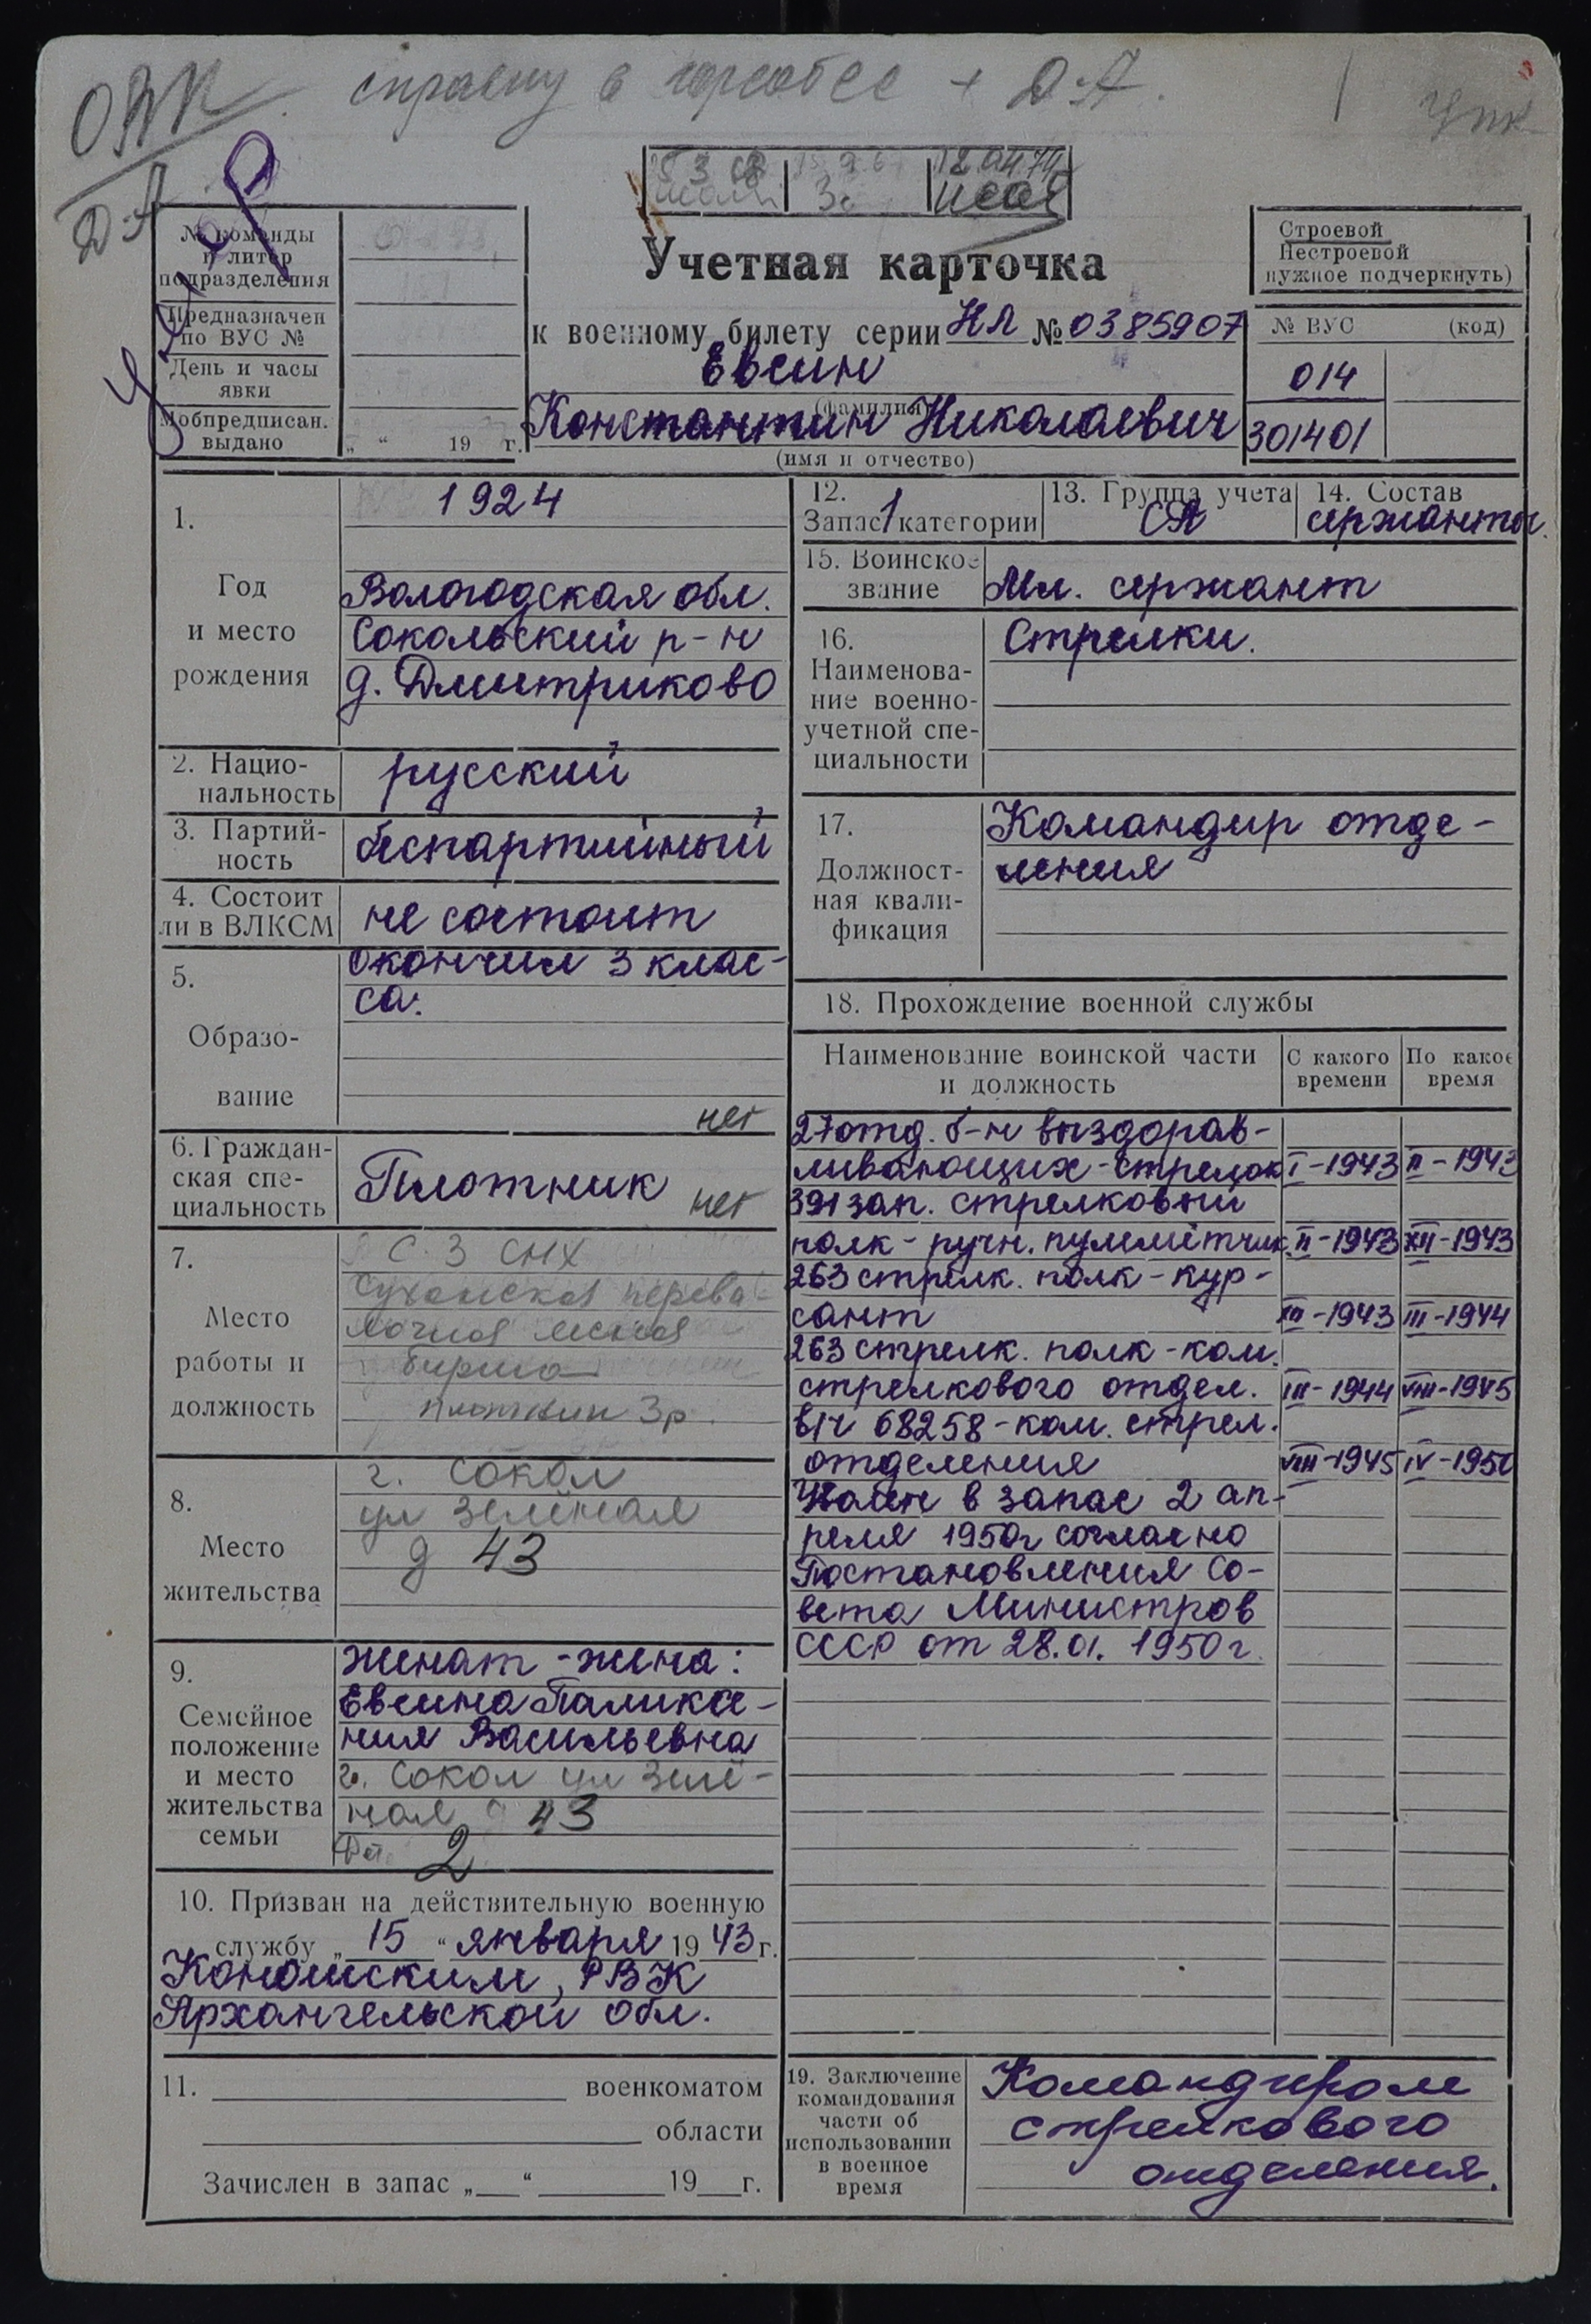 справку в горсобес + Д-А.
ОВК
Д-А
УПК
12.04.74
Умер
№ команды
и литер
подразделения
Предназначен
по ВУС №
День и часы
явки
Мобпредписан.
выдано
„ “ 19 г.
Учетная карточка
к военному билету серии НЛ № 0385907
Евсин
(фамилия)
Константин Николаевич
(имя и отчество)
Строевой
Нестроевой
нужное подчеркнуть)
№ ВУС (код)
014
301401
1.
Год
и место
рождения
1924
Вологодская обл.
Сокольский р-н
д. Дмитриково
2. Нацио-
нальность
русский
3. Партий-
ность
беспартийный
4. Состоит
ли в ВЛКСМ
не состоит
5.
Образо-
вание
Окончил 3 клас-
са.
нет
6. Граждан-
ская спе-
циальность
Плотник
нет
7.
Место
работы и
должность
С.З СНХ
Сухонская перева-
лочная лесная
биржа
плотник 3р.
8.
Место
жительства
г. Сокол
ул Зелёная
д 43
9.
Семейное
положение
и место
жительства
семьи
женат - жена:
Евсина Паликсе-
ния Васильевна
г. Сокол ул Зелё-
ная 43
2
10. Призван на действительную военную
службу „ 15 “ января 19 43 г.
Коношским РВК
Архангельской обл.
11. военкоматом
области
Зачислен в запас „ “ 19 г.
12.
Запас 1 категории
13. Группа учета
СА
14. Состав
сержанты.
15. Воинское
звание
Мл. сержант
16.
Наименова-
ние военно-
учетной спе-
циальности
Стрелки.
17.
Должност-
ная квали-
фикация
Командир отде-
ления
18. Прохождение военной службы
Наименование воинской части
и должность
С какого
времени
По какое
время
27 отд. б-н выздорав-
ливающих - стрелок I-1943 II-1943
391 зап. стрелковый
полк - ручн. пулемётчик II-1943 XII-1943
263 стрелк. полк - кур-
сант XII-1943 III-1944
263 стрелк. полк - ком.
стрелкового отдел. III-1944 VIII-1945
в/ч 68258 - ком. стрел.
отделения VIII-1945 IV-1950
Уволен в запас 2 ап-
реля 1950г согласно
Постановления Со-
вета Министров
СССР от 28.01.1950г.
19. Заключение
командования
части об
использовании
в военное
время
Командиром
стрелкового
отделения.